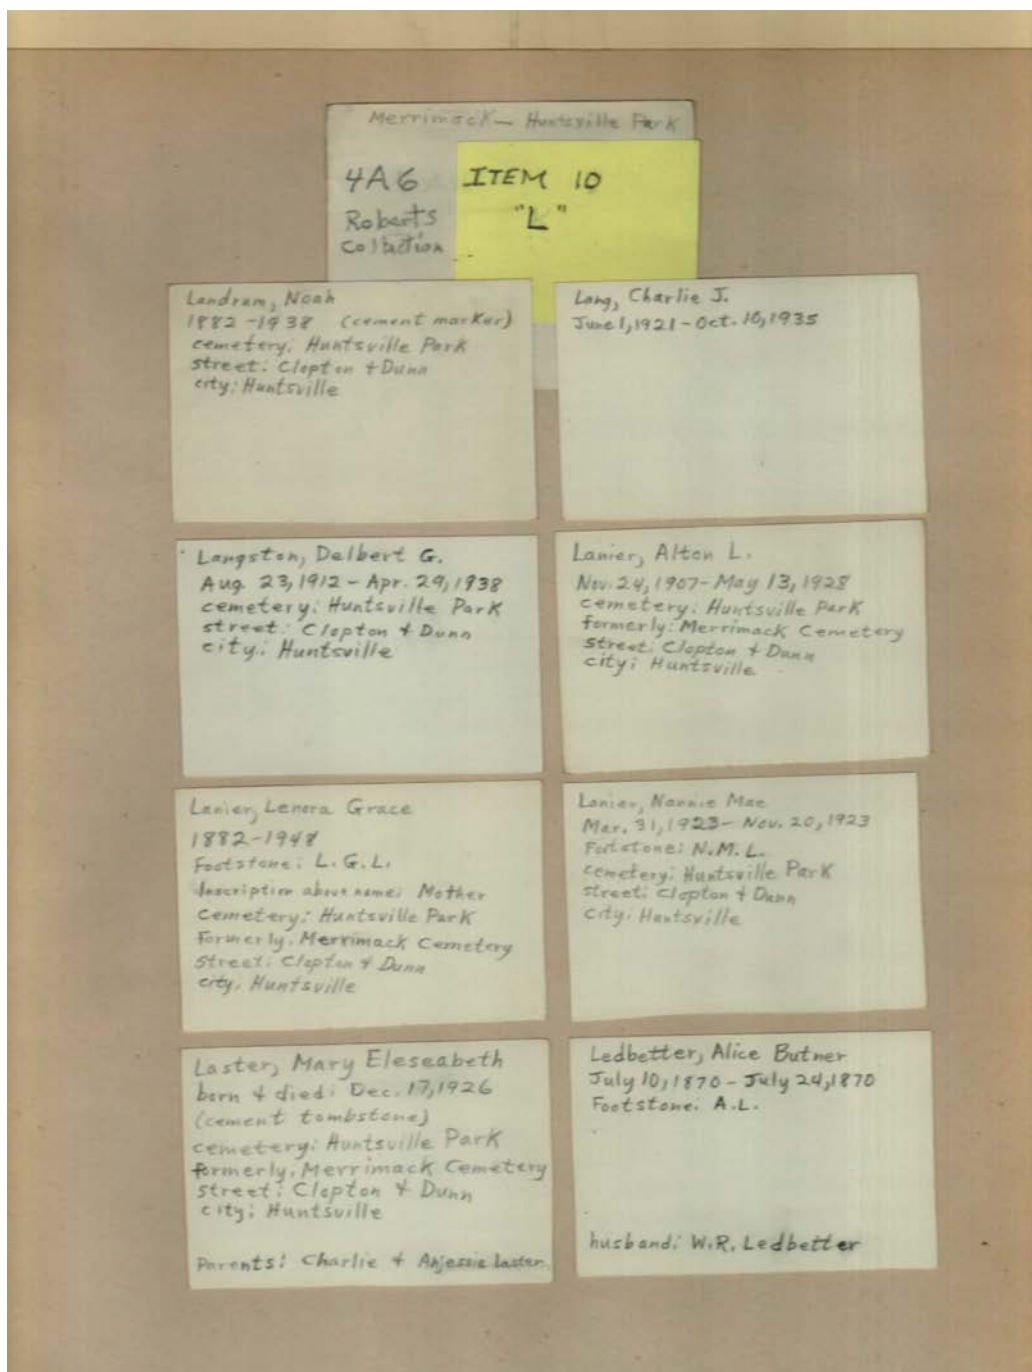 Merrimack — Huntsville Park
4A6
Roberts
Collection
ITEM 10
"L"
Landrum, Noah
1882 - 1938 (cement marker)
cemetery: Huntsville Park
street: Clopton + Dunn
city: Huntsville
Lang, Charlie J.
June 1, 1921 - Oct. 10, 1935
Langston, Delbert G.
Aug. 23, 1912 - Apr. 29, 1938
cemetery: Huntsville Park
street: Clopton + Dunn
city: Huntsville
Lanier, Alton L.
Nov. 24, 1907 - May 13, 1928
cemetery: Huntsville Park
formerly: Merrimack Cemetery
street: Clopton + Dunn
city: Huntsville
Lanier, Lenora Grace
1882 - 1948
Footstone: L.G.L.
Inscription above name: Mother
Cemetery: Huntsville Park
Formerly: Merrimack Cemetery
street: Clopton + Dunn
city: Huntsville
Lanier, Nannie Mae
Mar. 31, 1923 - Nov. 20, 1923
Footstone: N.M.L.
cemetery: Huntsville Park
street: Clopton + Dunn
city: Huntsville
Laster, Mary Eleseabeth
born + died: Dec. 17, 1926
(cement tombstone)
cemetery: Huntsville Park
formerly: Merrimack Cemetery
street: Clopton + Dunn
city: Huntsville
Parents: Charlie + Anjessie Laster.
Ledbetter, Alice Butner
July 10, 1870 - July 24, 1870
Footstone: A.L.
husband: W.R. Ledbetter